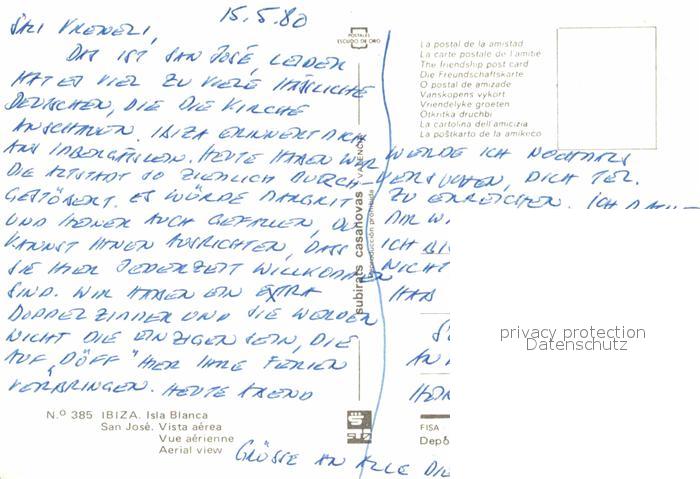 15.5.80
SALI VRENELI,
DAS IST SAN JOSÉ, LEIDER
HAT ES VIEL ZU VIELE HÄSSLICHE
DEUTSCHEN, DIE DIE KIRCHE
ANSCHAUEN. IBIZA ERINNERT MICH
ANS HEUTE HABEN WIR
DIE ALTSTADT SO ZIEMLICH DURCH-
GESTÖBERT. ES WÜRDE MARGRIT
UND HEINER AUCH GEFALLEN, DU
KANNST IHNEN AUSRICHTEN, DASS
SIE HIER JEDERZEIT WILLKOMMEN
SIND. WIR HABEN EIN EXTRA
DOPPELZIMMER UND SIE WERDEN
NICHT DIE EINZIGEN SEIN, DIE
AUF "DÖFF" HIER IHRE FERIEN
VERBRINGEN. HEUTE ABEND
WERDE ICH NOCHMALS
VERSUCHEN, DICH TEL.
ZU ERREICHEN. ICH
MIR WI
ICH BI
NICHT
HAB
AN
GRÜSSE AN ALLE DIE
POSTALES
ESCUDO DE ORO
La postal de la amistad
La carte postale de l'amitié
The friendship post card
Die Freundschaftskarte
O postal de amizade
Vanskopens vykort
Vriendelyke groeten
Otkritka druchbi
La cartolina dell'amicizia
La poŝtkarto de la amikeco
subirats casanovas VALENCIA
reproducción prohibida
N.º 385 IBIZA. Isla Blanca
San José. Vista aérea
Vue aérienne
Aerial view
FISA
Depó
privacy protection
Datenschutz